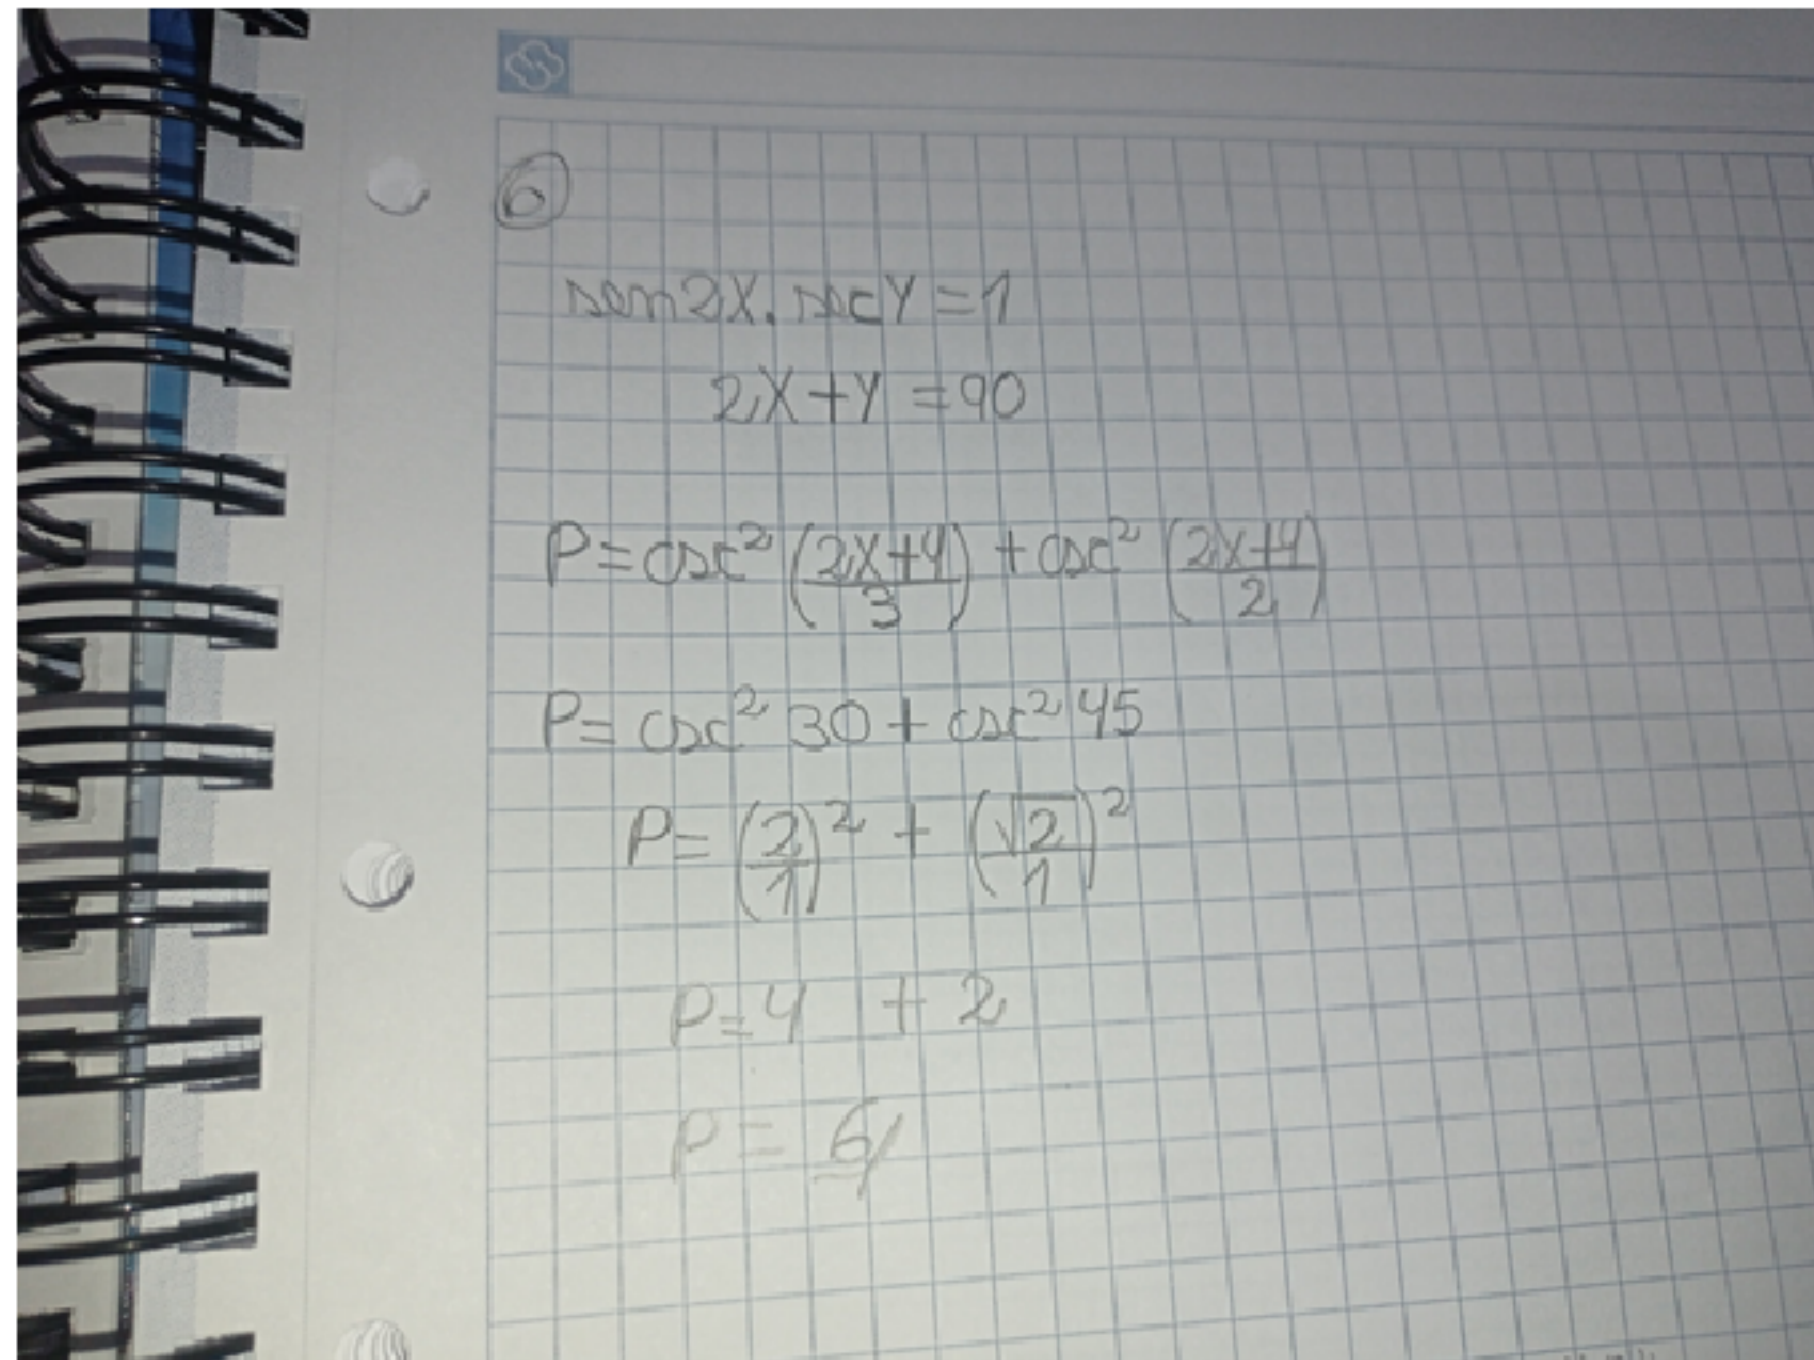 6
sen2X.secY=1
2X+Y=90
P=csc² (2X+Y/3) + csc² (2X+Y/2)
P=csc² 30 + csc² 45
P=(2/1)² + (√2/1)²
P=4 + 2
P=6